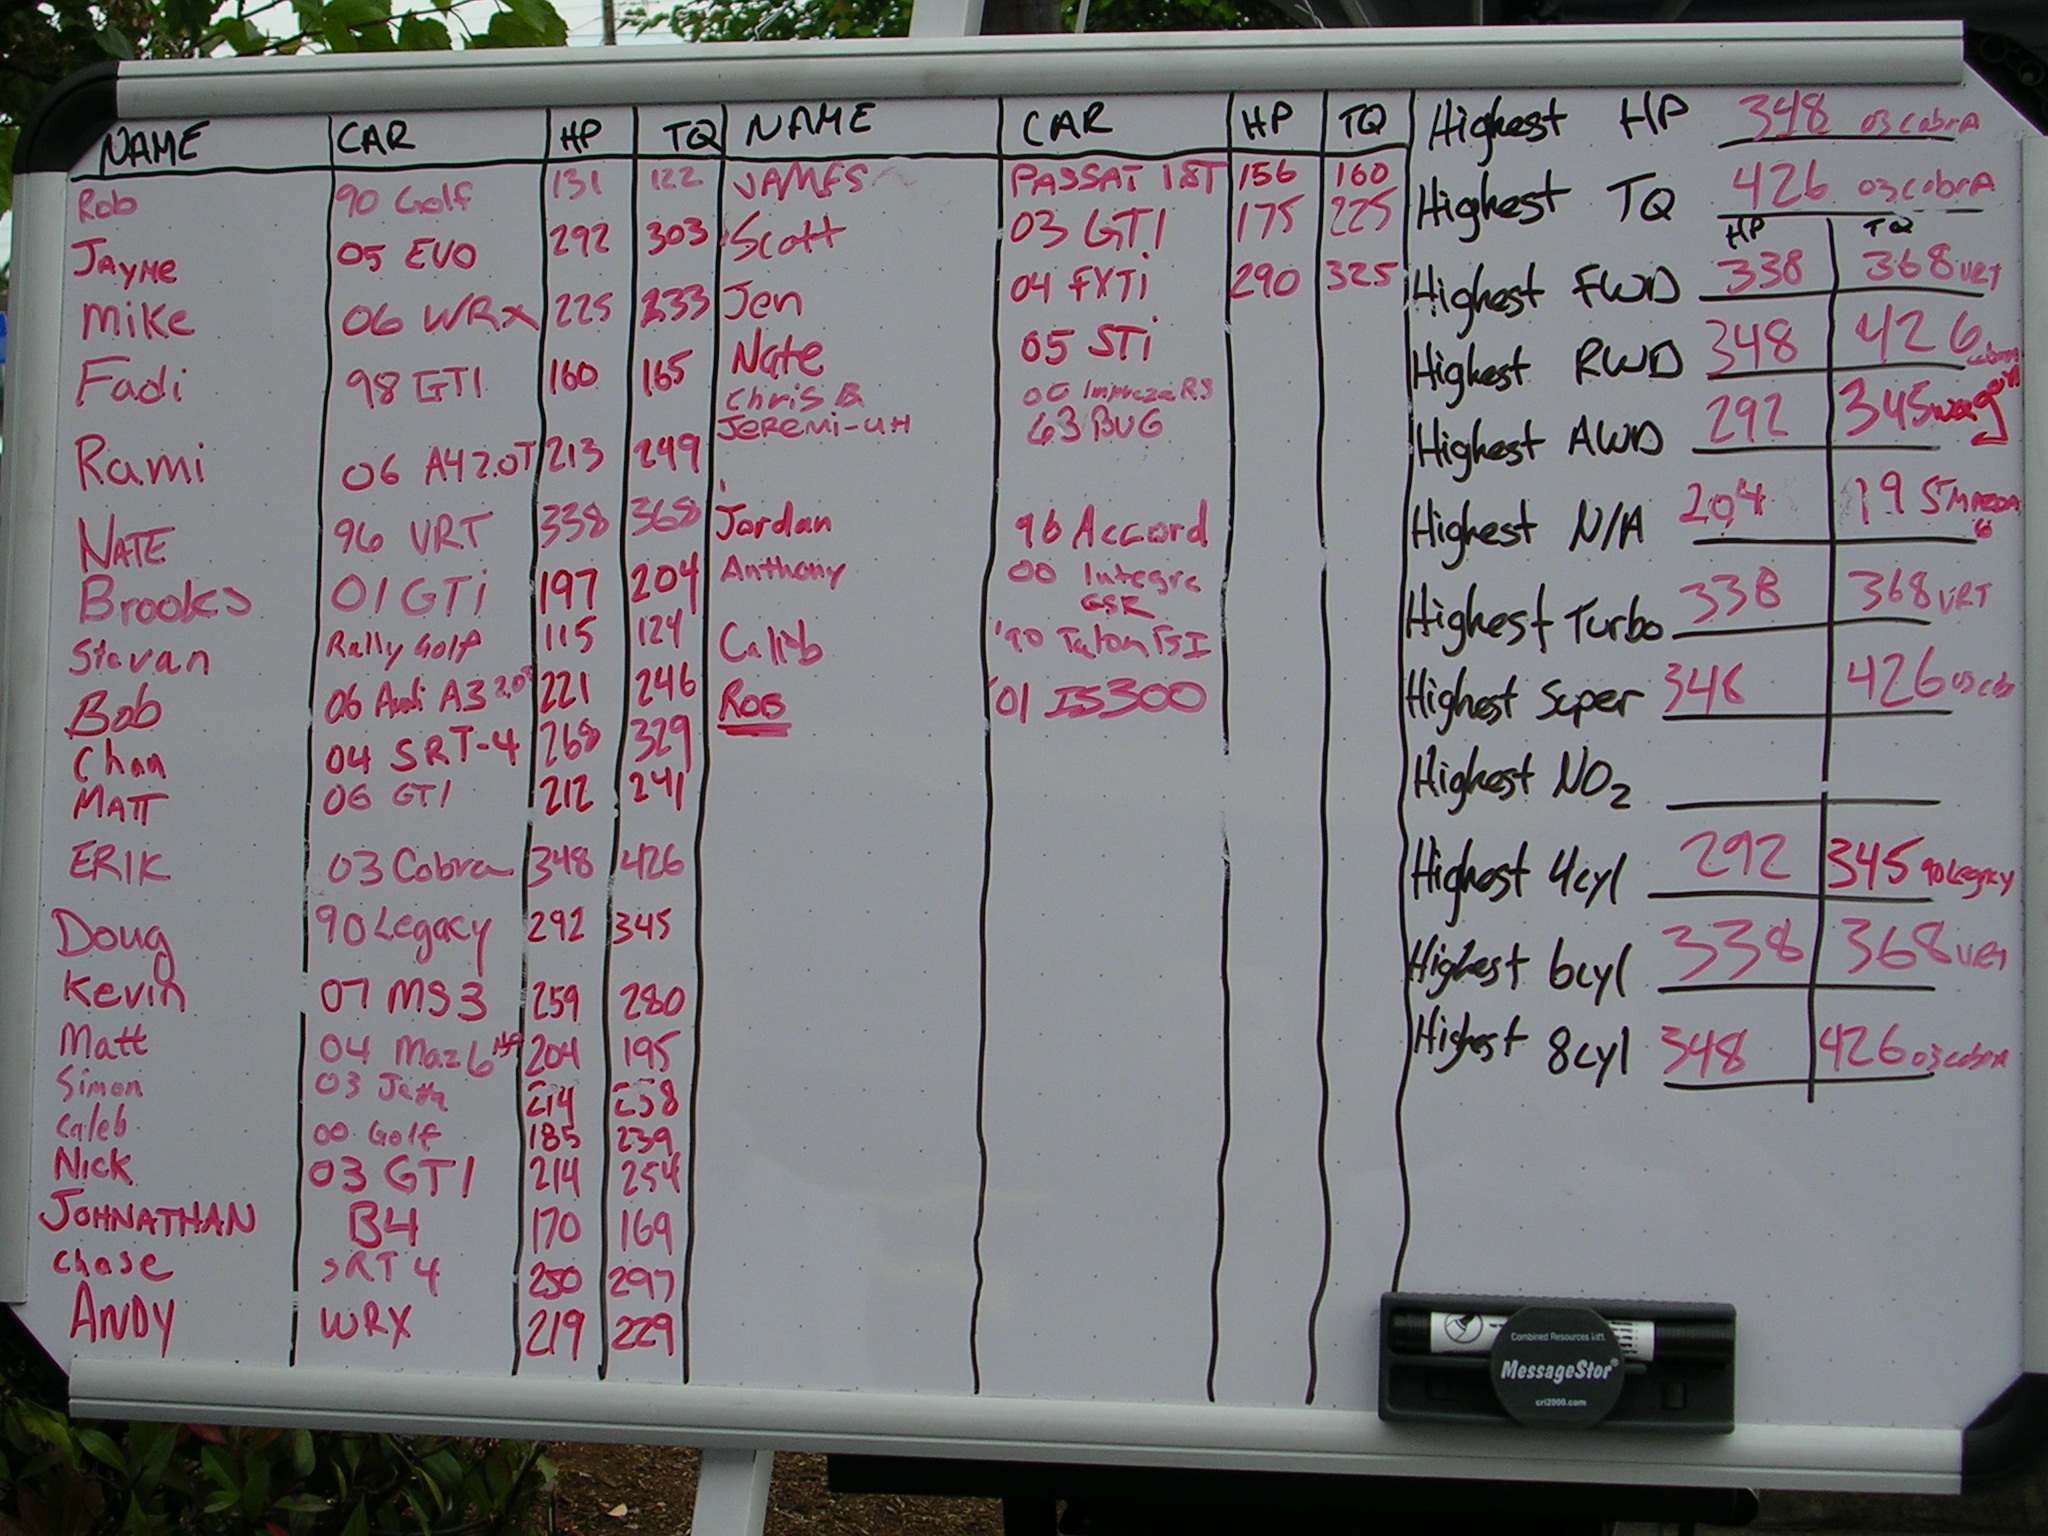 NAME CAR HP TQ
Rob 90 Golf 131 122
Jayme 05 EVO 292 303
Mike 06 WRX 225 233
Fadi 98 GTI 160 165
Rami 06 A4 2.0T 213 249
NATE 96 VRT 338 368
Brooks 01 GTi 197 204
Stevan Rally Golf 115 124
Bob 06 Audi A3 2.0T 221 246
Chan 04 SRT-4 268 329
MATT 06 GTI 212 241
ERIK 03 Cobra 348 426
Doug 90 Legacy 292 345
Kevin 07 MS3 259 280
Matt 04 Maz6 204 195
Simon 03 Jetta 214 258
Caleb 00 Golf 185 239
Nick 03 GTI 214 254
JOHNATHAN B4 170 169
Chase SRT 4 250 297
ANDY WRX 219 229
NAME CAR HP TQ
JAMES PASSAT 1.8T 156 160
Scott 03 GTI 175 225
Jen 04 FXTi 290 325
Nate 05 STi
Chris B Impreza RS
JeReMi-UH 63 BUG
Jordan 96 Accord
Anthony 00 Integra
GSR
Calieb '90 Talon TSI
ROB '01 IS300
Highest HP 348 03 CobrA
Highest TQ 426 03 CobrA
HP TQ
Highest FWD 338 368 VRT
Highest RWD 348 426 cobra
Highest AWD 292 345 wagon
Highest N/A 204 195 MAZDA
6
Highest Turbo 338 368 VRT
Highest Super 348 426 03 cob
Highest NO2
Highest 4cyl 292 345 90 Legacy
Highest 6cyl 338 368 VRT
Highest 8cyl 348 426 03 cobrA
Combined Resources Int'l.
MessageStor®
cri2000.com